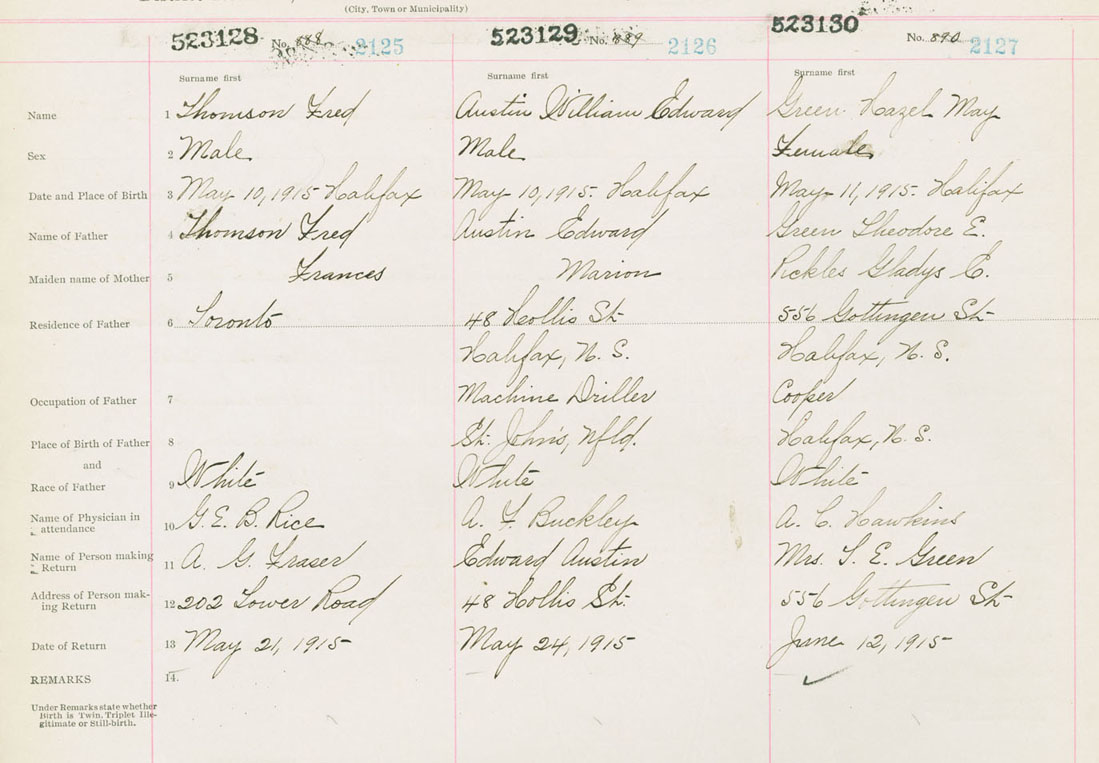 (City, Town or Municipality)
523128 No. 888 2125 523129 No. 889 2126 523130 No. 890 2127
Surname first Surname first Surname first
Name 1 Thomson Fred Austin William Edward Green Hazel May
Sex 2 Male Male Female
Date and Place of Birth 3 May 10, 1915 Halifax May 10, 1915. Halifax May 11, 1915. Halifax
Name of Father 4 Thomson Fred Austin Edward Green Theodore E.
Maiden name of Mother 5 Frances Marion Pickles Gladys E.
Residence of Father 6 Toronto 48 Hollis St. 556 Gottingen St.
Halifax, N. S. Halifax, N. S.
Occupation of Father 7 Machine Driller Cooper
Place of Birth of Father 8 St. John's, Nfld. Halifax, N. S.
and
Race of Father 9 White White White
Name of Physician in attendance 10 G. E. B. Rice A. F. Buckley A. C. Hawkins
Name of Person making Return 11 A. G. Fraser Edward Austin Mrs. T. E. Green
Address of Person mak-
ing Return 12 202 Tower Road 48 Hollis St. 556 Gottingen St.
Date of Return 13 May 21, 1915 May 24, 1915 June 12, 1915
REMARKS 14.
Under Remarks state whether
Birth is Twin, Triplet Ille-
gitimate or Still-birth.